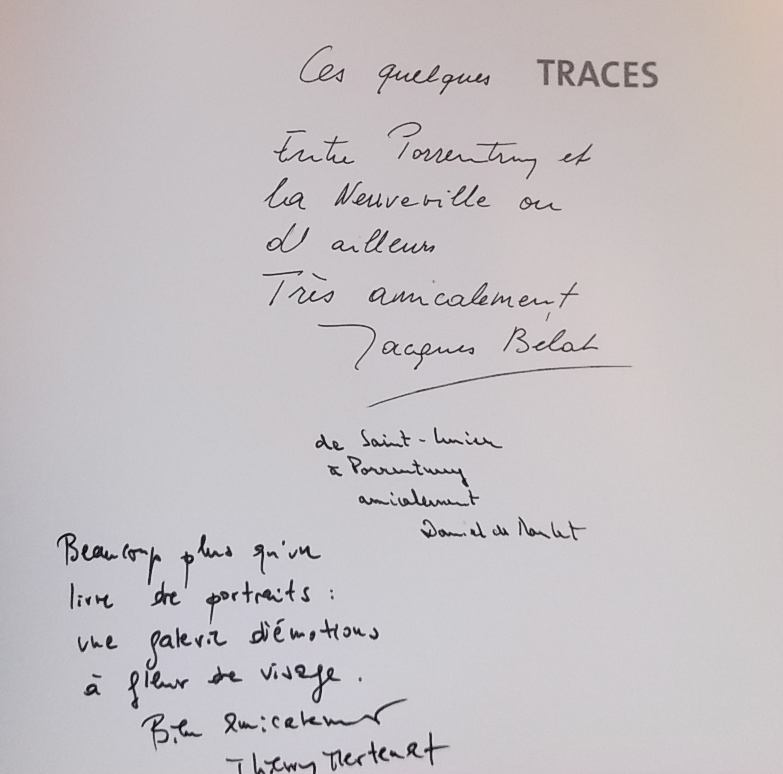 Ces quelques TRACES
Entre Porrentruy et
La Neuveville ou
d'ailleurs
Très amicalement
Jacques Bélat
de Saint-Imier
à Porrentruy
amicalement
Daniel de
Beaucoup plus qu'un
livre de portraits :
une galerie d'émotions
à fleur de visage.
Bien amicalement
Thierry Mertenat